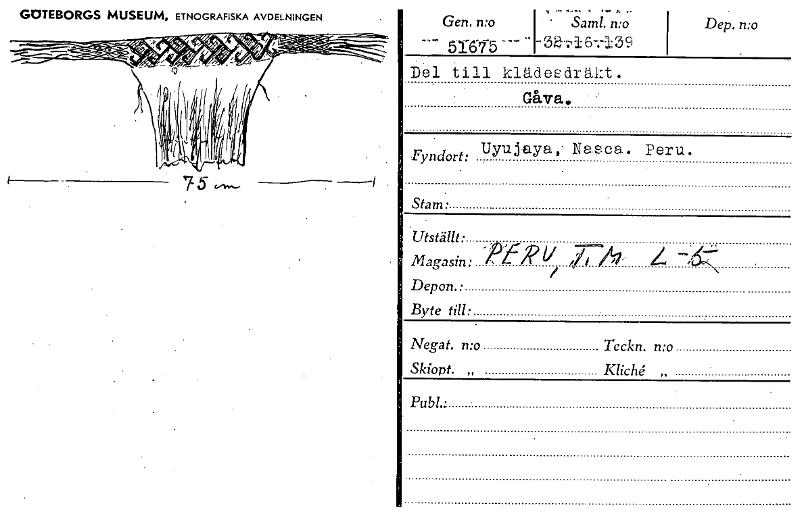 GÖTEBORGS MUSEUM, ETNOGRAFISKA AVDELNINGEN
75 cm
Gen. n:o
51675
Saml. n:o
32.16.139
Dep. n:o
Del till klädesdräkt.
Gåva.
Fyndort: Uyujaya, Nasca. Peru.
Stam:
Utställt:
Magasin: PERU, T.M L-5
Depon.:
Byte till:
Negat. n:o Teckn. n:o
Skiopt. „ Kliché „
Publ.: